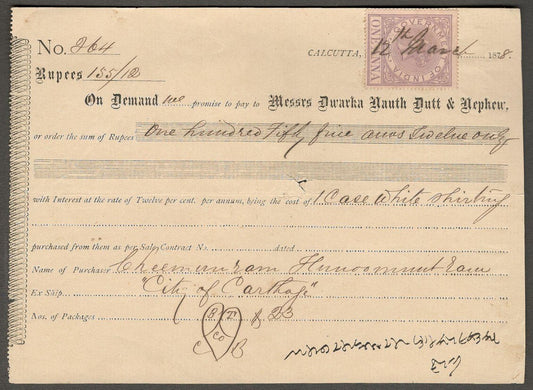 No. 264
CALCUTTA, 12th March 1878.
GOVERNMENT OF INDIA
ONE ANNA
Rupees 155/12
On Demand we promise to pay to Messrs Dwarka Nauth Dutt & Nephew,
or order the sum of Rupees One hundred Fifty five anas Twelve only
with Interest at the rate of Twelve per cent. per annum, being the cost of 1 Case White Shirting
purchased from them as per Sale Contract No. dated
Name of Purchaser Cheemunram Hunoomunt Ram
Ex Ship "City of Carthage"
Nos. of Packages
& 23
Co
C B